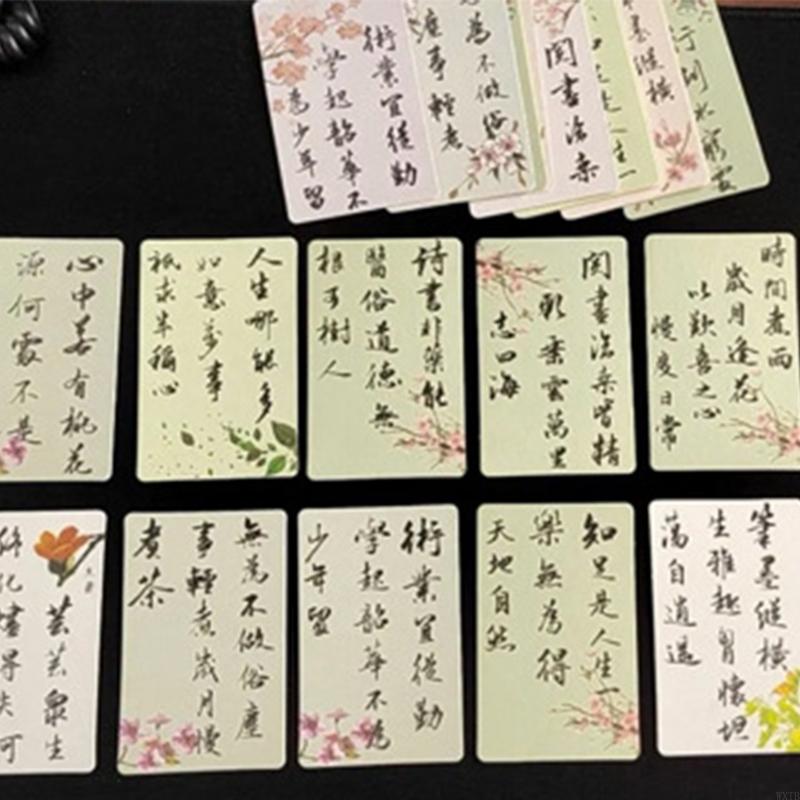 術業宜從勤
學起韶華不
為少年留
為不做俗
塵事輕煮
閱書法
人生一
墨縱橫
行到水窮雲
心中若有桃花
源何處不是
人生哪能多
如意萬事
祇求半稱心
詩書非藥能
醫俗道德無
根可樹人
閱書法皆精
乘雲萬里
志四海
時間煮雨
歲月逢花
以歡喜之心
慢度日常
芸芸眾生
無為不做俗塵
事輕煮歲月慢
煮茶
術業宜從勤
學起韶華不為
少年留
知足是人生一
樂無為得
天地自然
筆墨縱橫
生雅趣胸懷坦
蕩自逍遙
WXTH